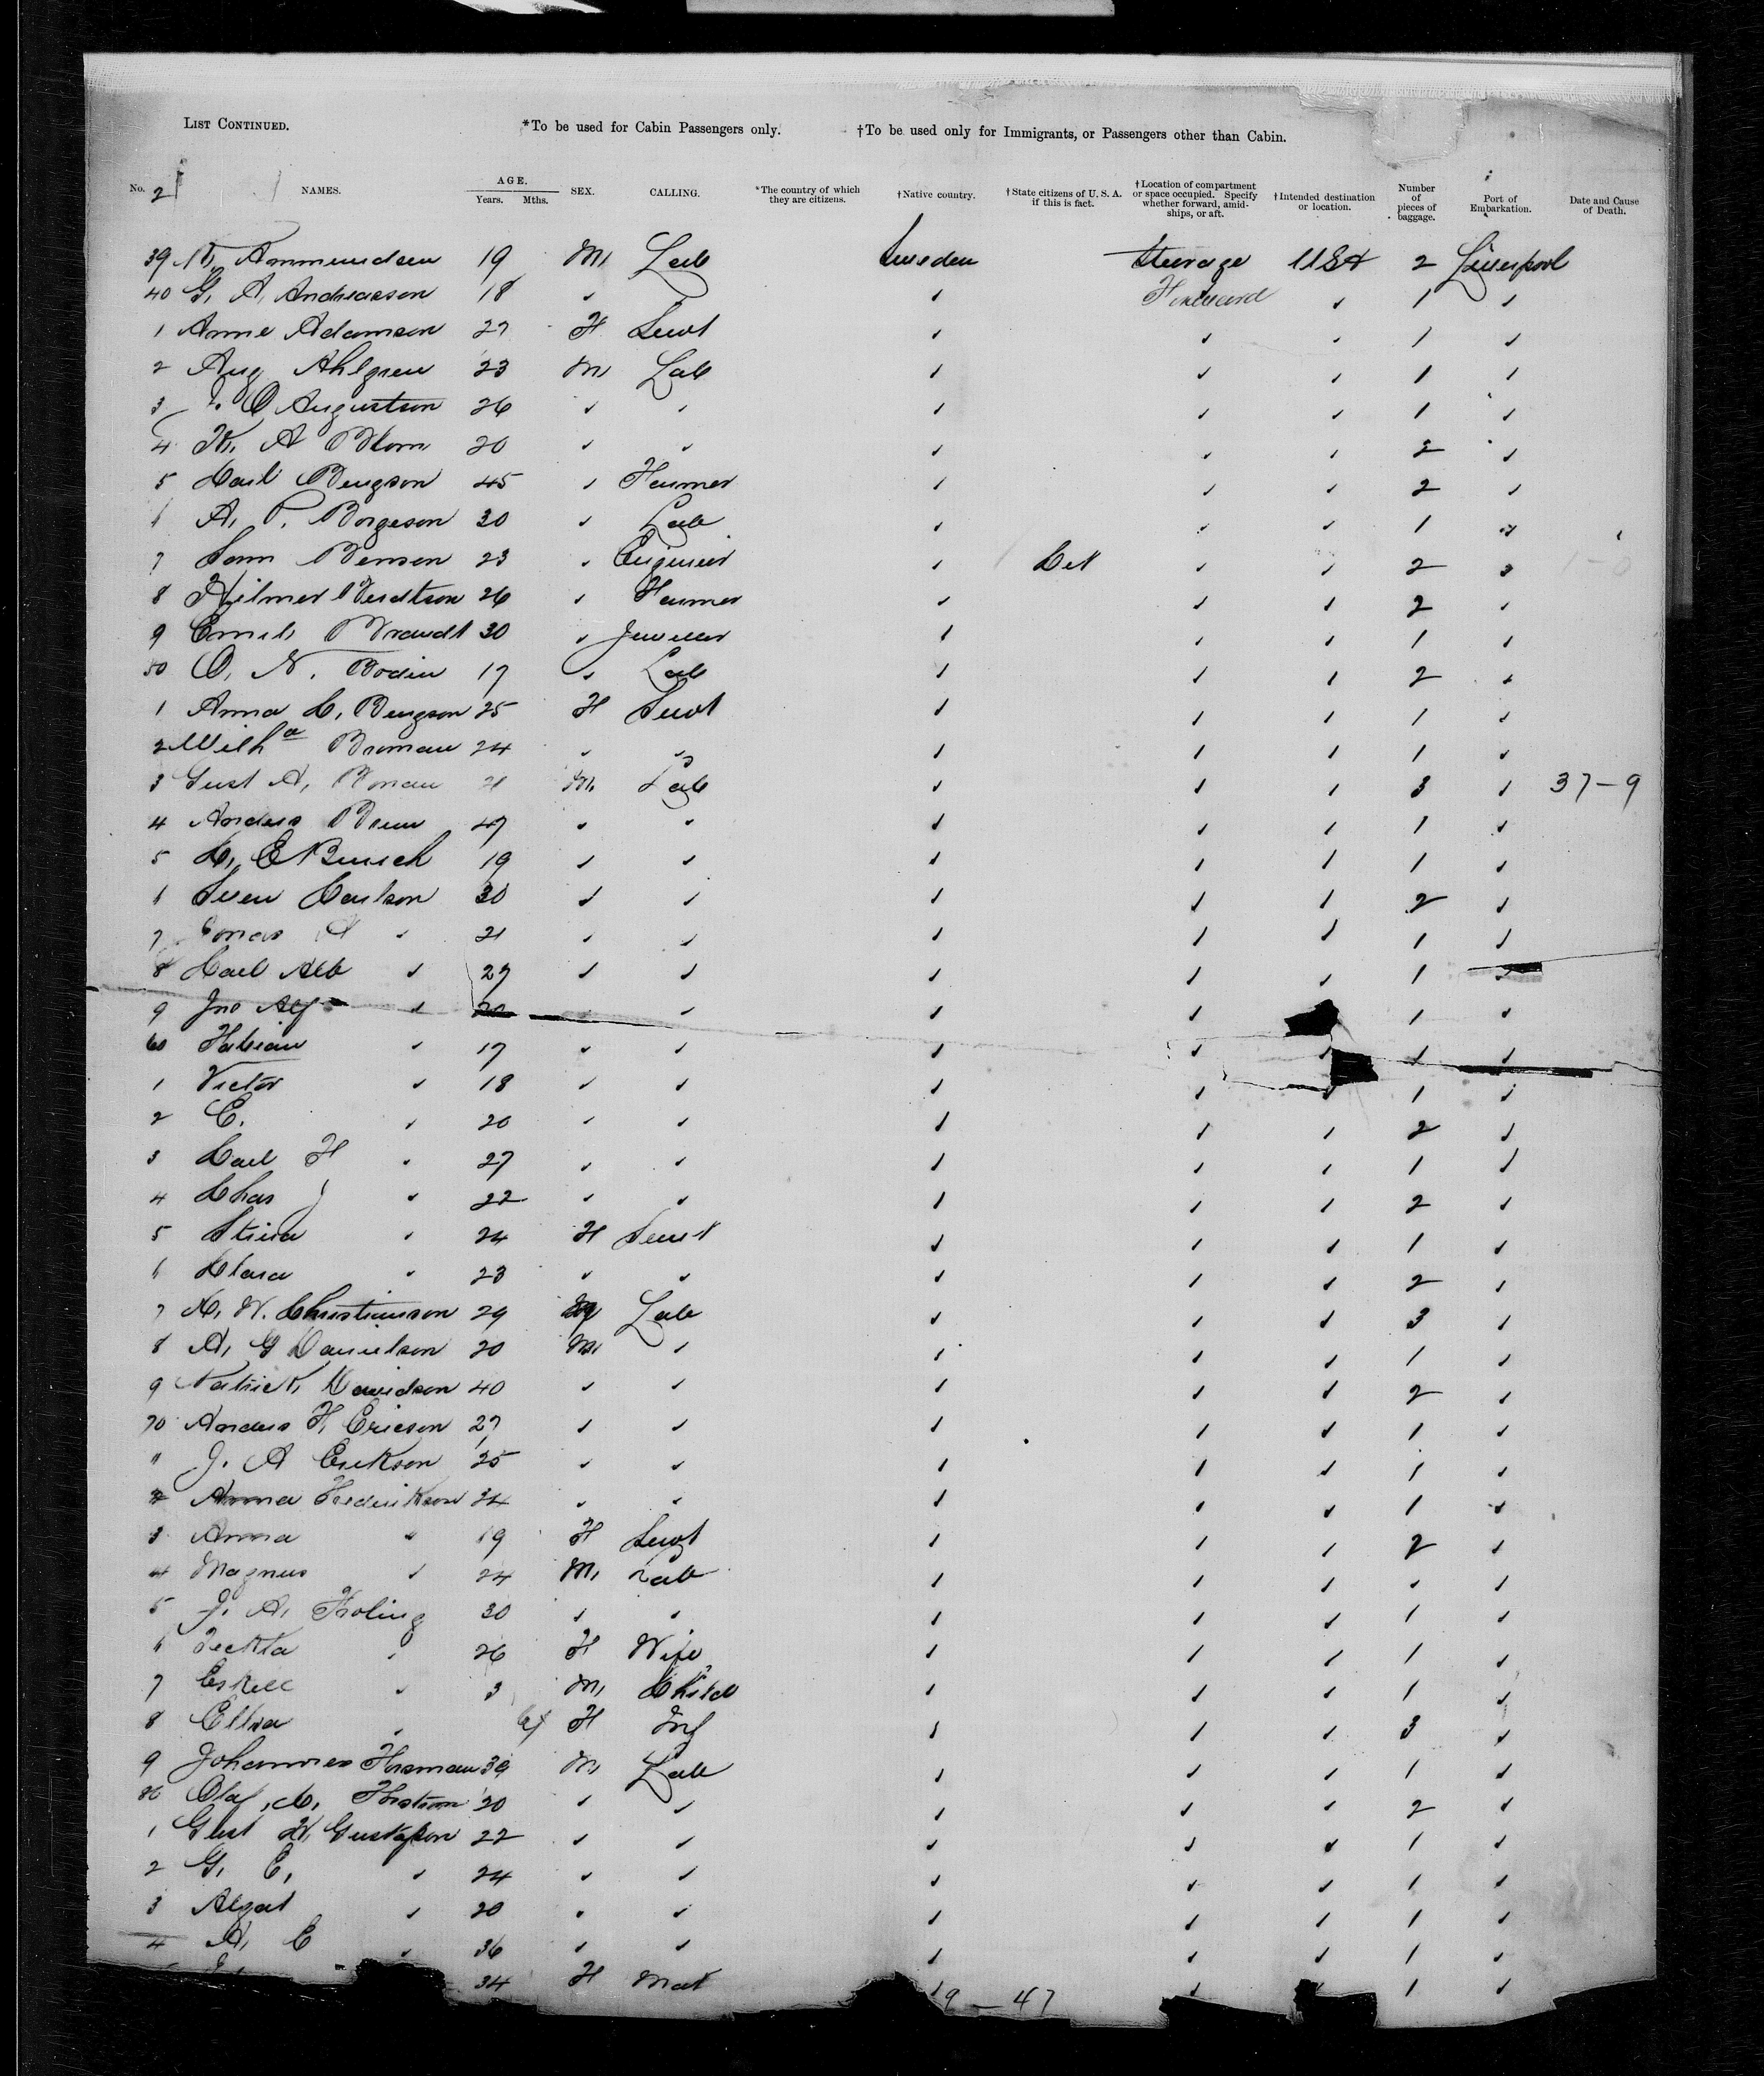 LIST CONTINUED. *To be used for Cabin Passengers only. †To be used only for Immigrants, or Passengers other than Cabin.
No. 2 NAMES. AGE. Years. Mths. SEX. CALLING. *The country of which they are citizens. †Native country. †State citizens of U. S. A. if this is fact. †Location of compartment or space occupied. Specify whether forward, amidships, or aft. †Intended destination or location. Number of pieces of baggage. Port of Embarkation. Date and Cause of Death.
39 Ammundsen 19 M Lab Sweden Steerage USA 2 Liverpool
40 G. A. Andreasson 18 ✓ ✓ Forward ✓ 1 ✓
1 Anne Adamson 27 F Servt ✓ ✓ ✓ 1 ✓
2 Aug Ahlgren 23 M Lab ✓ ✓ ✓ 1 ✓
3 O Augustson 26 ✓ ✓ ✓ ✓ ✓ 1 ✓
4 K. A Blom 20 ✓ ✓ ✓ ✓ ✓ 2 ✓
5 Carl Bengson 45 ✓ Farmer ✓ ✓ ✓ 2 ✓
6 A. P. Borgeson 30 ✓ Lab ✓ ✓ ✓ 1 ✓
7 Benson 23 ✓ Engineer ✓ Cit ✓ ✓ 2 ✓
8 Hjilmer 26 ✓ Farmer ✓ ✓ ✓ 2 ✓
9 Emil Brandt 30 ✓ Jeweller ✓ ✓ ✓ 1 ✓
50 O. N. Bodin 17 ✓ Lab ✓ ✓ ✓ 2 ✓
1 Anna C. Bengson 25 F Servt ✓ ✓ ✓ 1 ✓
2 Wilha Broman 24 ✓ ✓ ✓ ✓ ✓ 1 ✓
3 Gust A. 21 M Lab ✓ ✓ ✓ 3 ✓ 37-9
4 Anders 47 ✓ ✓ ✓ ✓ ✓ 1 ✓
5 C. E 19 ✓ ✓ ✓ ✓ ✓ 1 ✓
6 Sven Carlson 30 ✓ ✓ ✓ ✓ ✓ 2 ✓
7 Jonas A ✓ 21 ✓ ✓ ✓ ✓ ✓ 1 ✓
8 Carl Alb ✓ 27 ✓ ✓ ✓ ✓ ✓ 1 ✓
9 Jno Alf ✓ 20 ✓ ✓ ✓ ✓ 1 ✓
60 Fabian ✓ 17 ✓ ✓ ✓ ✓ ✓ 1 ✓
1 Victor ✓ 18 ✓ ✓ ✓ ✓ ✓ 1 ✓
2 C. ✓ 20 ✓ ✓ ✓ ✓ ✓ 2 ✓
3 Carl F ✓ 27 ✓ ✓ ✓ ✓ ✓ 1 ✓
4 Chas J ✓ 22 ✓ ✓ ✓ ✓ ✓ 2 ✓
5 Stina ✓ 24 F Servt ✓ ✓ ✓ 1 ✓
6 Clara ✓ 23 ✓ ✓ ✓ ✓ ✓ 2 ✓
7 W. Christianson 29 Lab ✓ ✓ ✓ 3 ✓
8 A. G Danielson 20 M ✓ ✓ ✓ ✓ 1 ✓
9 Patrick Davidson 40 ✓ ✓ ✓ ✓ ✓ 2 ✓
70 Anders F. Ericson 27 ✓ ✓ ✓ ✓ ✓ 1 ✓
" J. A Erikson 25 ✓ ✓ ✓ ✓ ✓ 1 ✓
2 Anna Frederikson 34 ✓ ✓ ✓ ✓ ✓ 1 ✓
3 Anna " 19 F Servt ✓ ✓ ✓ 2 ✓
4 Magnus ✓ 24 M Lab ✓ ✓ ✓ ✓ ✓
5 J. A. Froling 30 ✓ ✓ ✓ ✓ ✓ 1 ✓
6 Teckla ✓ 26 F Wife ✓ ✓ ✓ 1 ✓
7 Eskell ✓ 3 M Child ✓ ✓ ✓ 1 ✓
8 ✓ F Inf ✓ ✓ ✓ 3 ✓
9 Johannes Forsman 39 M Lab ✓ ✓ ✓ 1 ✓
80 Olaf 20 ✓ ✓ ✓ ✓ ✓ 2 ✓
1 Gust Gustafson 22 ✓ ✓ ✓ ✓ ✓ 1 ✓
2 G. E. ✓ 24 ✓ ✓ ✓ ✓ ✓ 1 ✓
3 Algat ✓ 20 ✓ ✓ ✓ ✓ ✓ 1 ✓
4 A. C ✓ 36 ✓ ✓ ✓ ✓ ✓ 1 ✓
34 F Mat ✓ ✓ 1 ✓
19-47